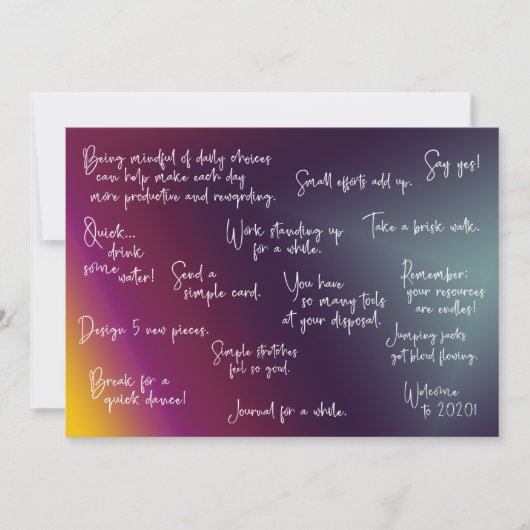 Being mindful of daily choices
can help make each day
more productive and rewarding.
Small efforts add up.
Say yes!
Quick...
drink
some
water!
Work standing up
for a while.
Take a brisk walk.
Send a
simple card.
You have
so many tools
at your disposal.
Remember:
your resources
are endless!
Design 5 new pieces.
Simple stretches
feel so good.
Jumping jacks
get blood flowing.
Break for a
quick dance!
Journal for a while.
Welcome
to 2020!